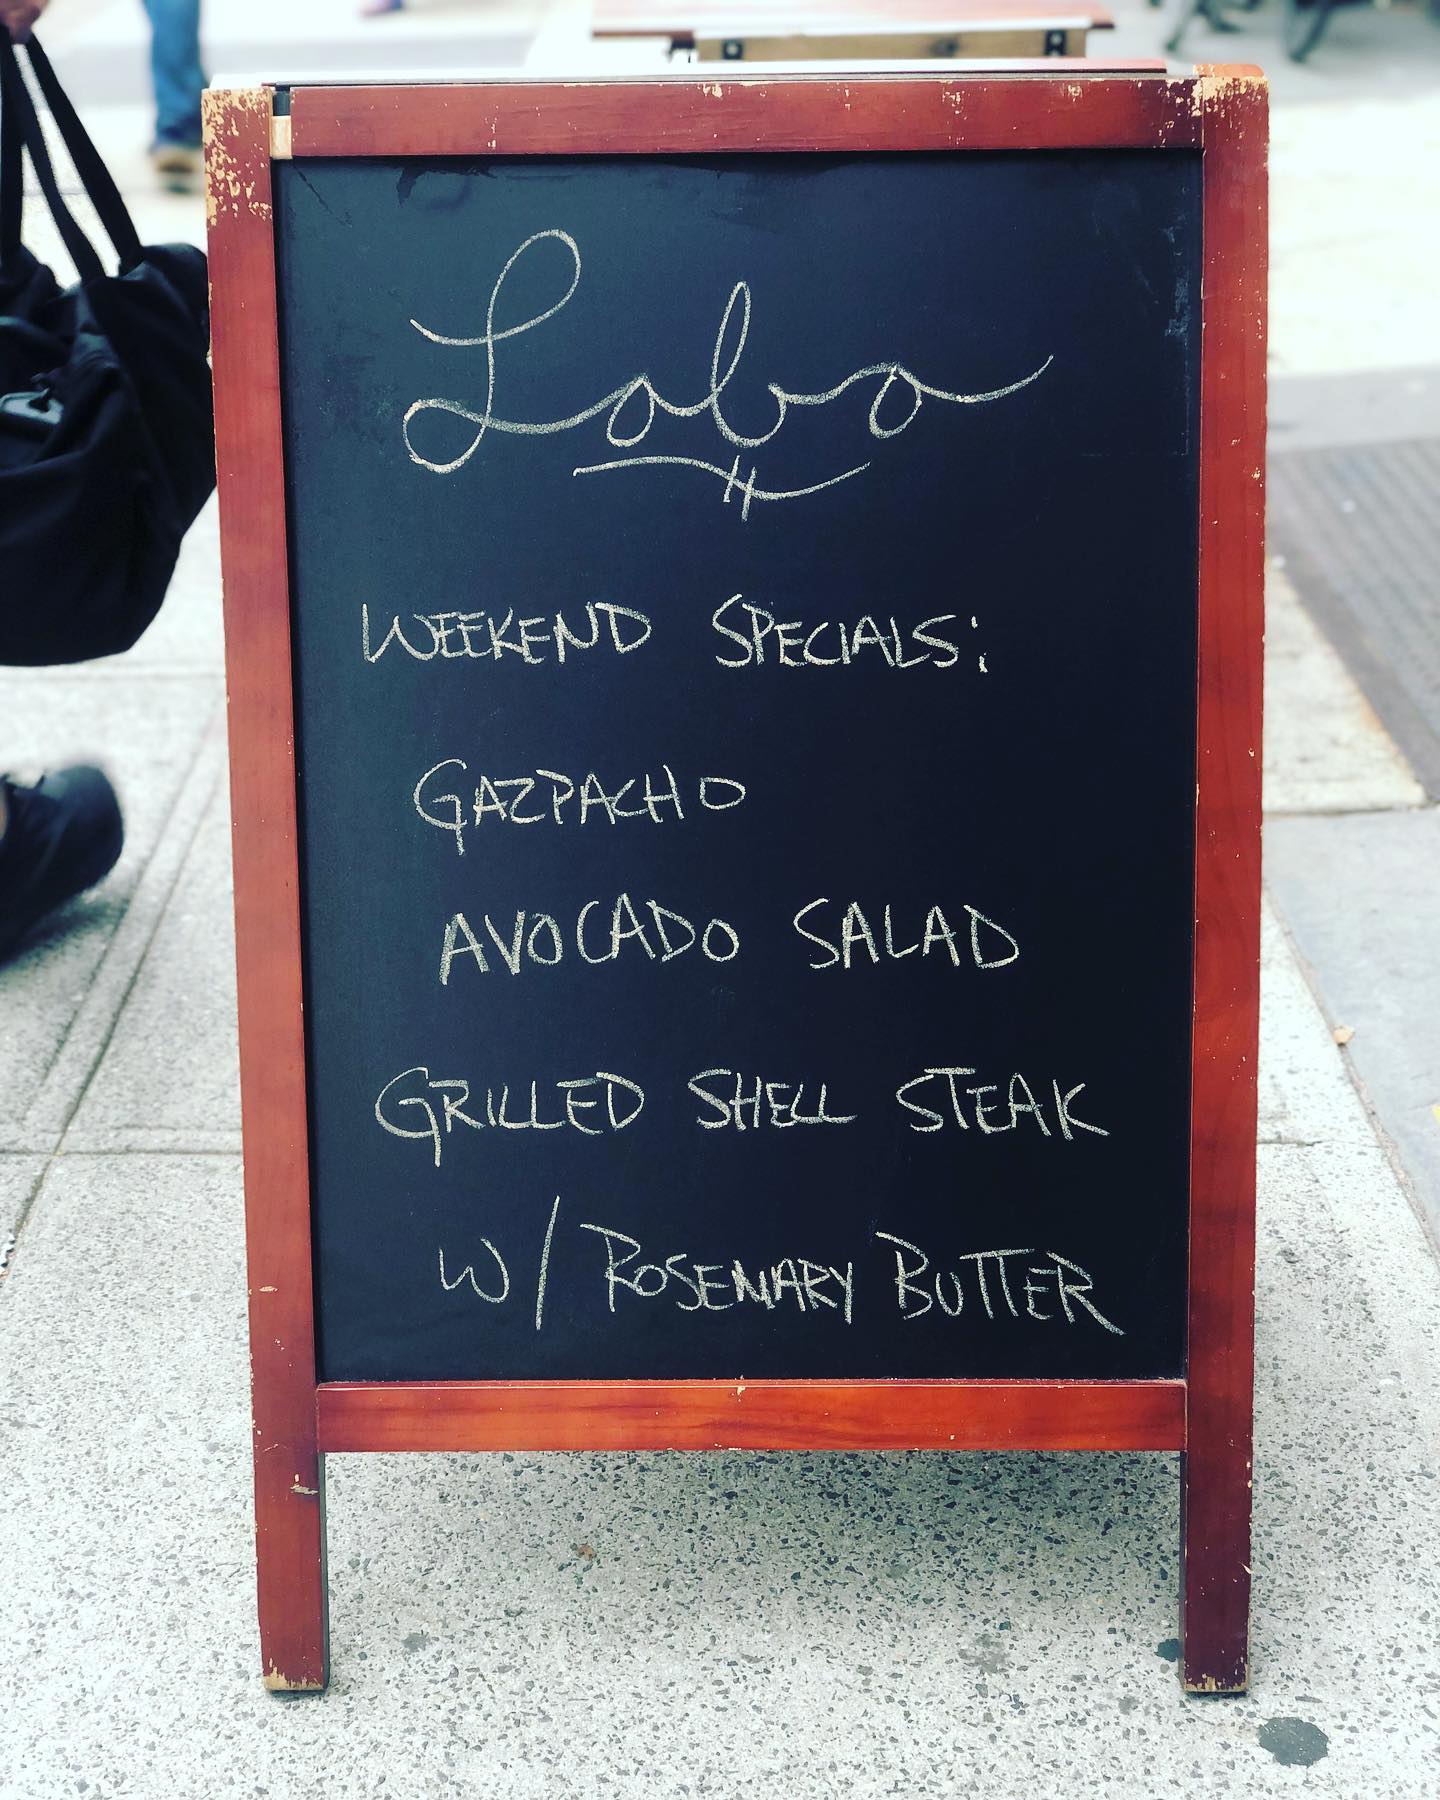 Lobo
WEEKEND SPECIALS:
GAZPACHO
AVOCADO SALAD
GRILLED SHELL STEAK
W/ ROSEMARY BUTTER